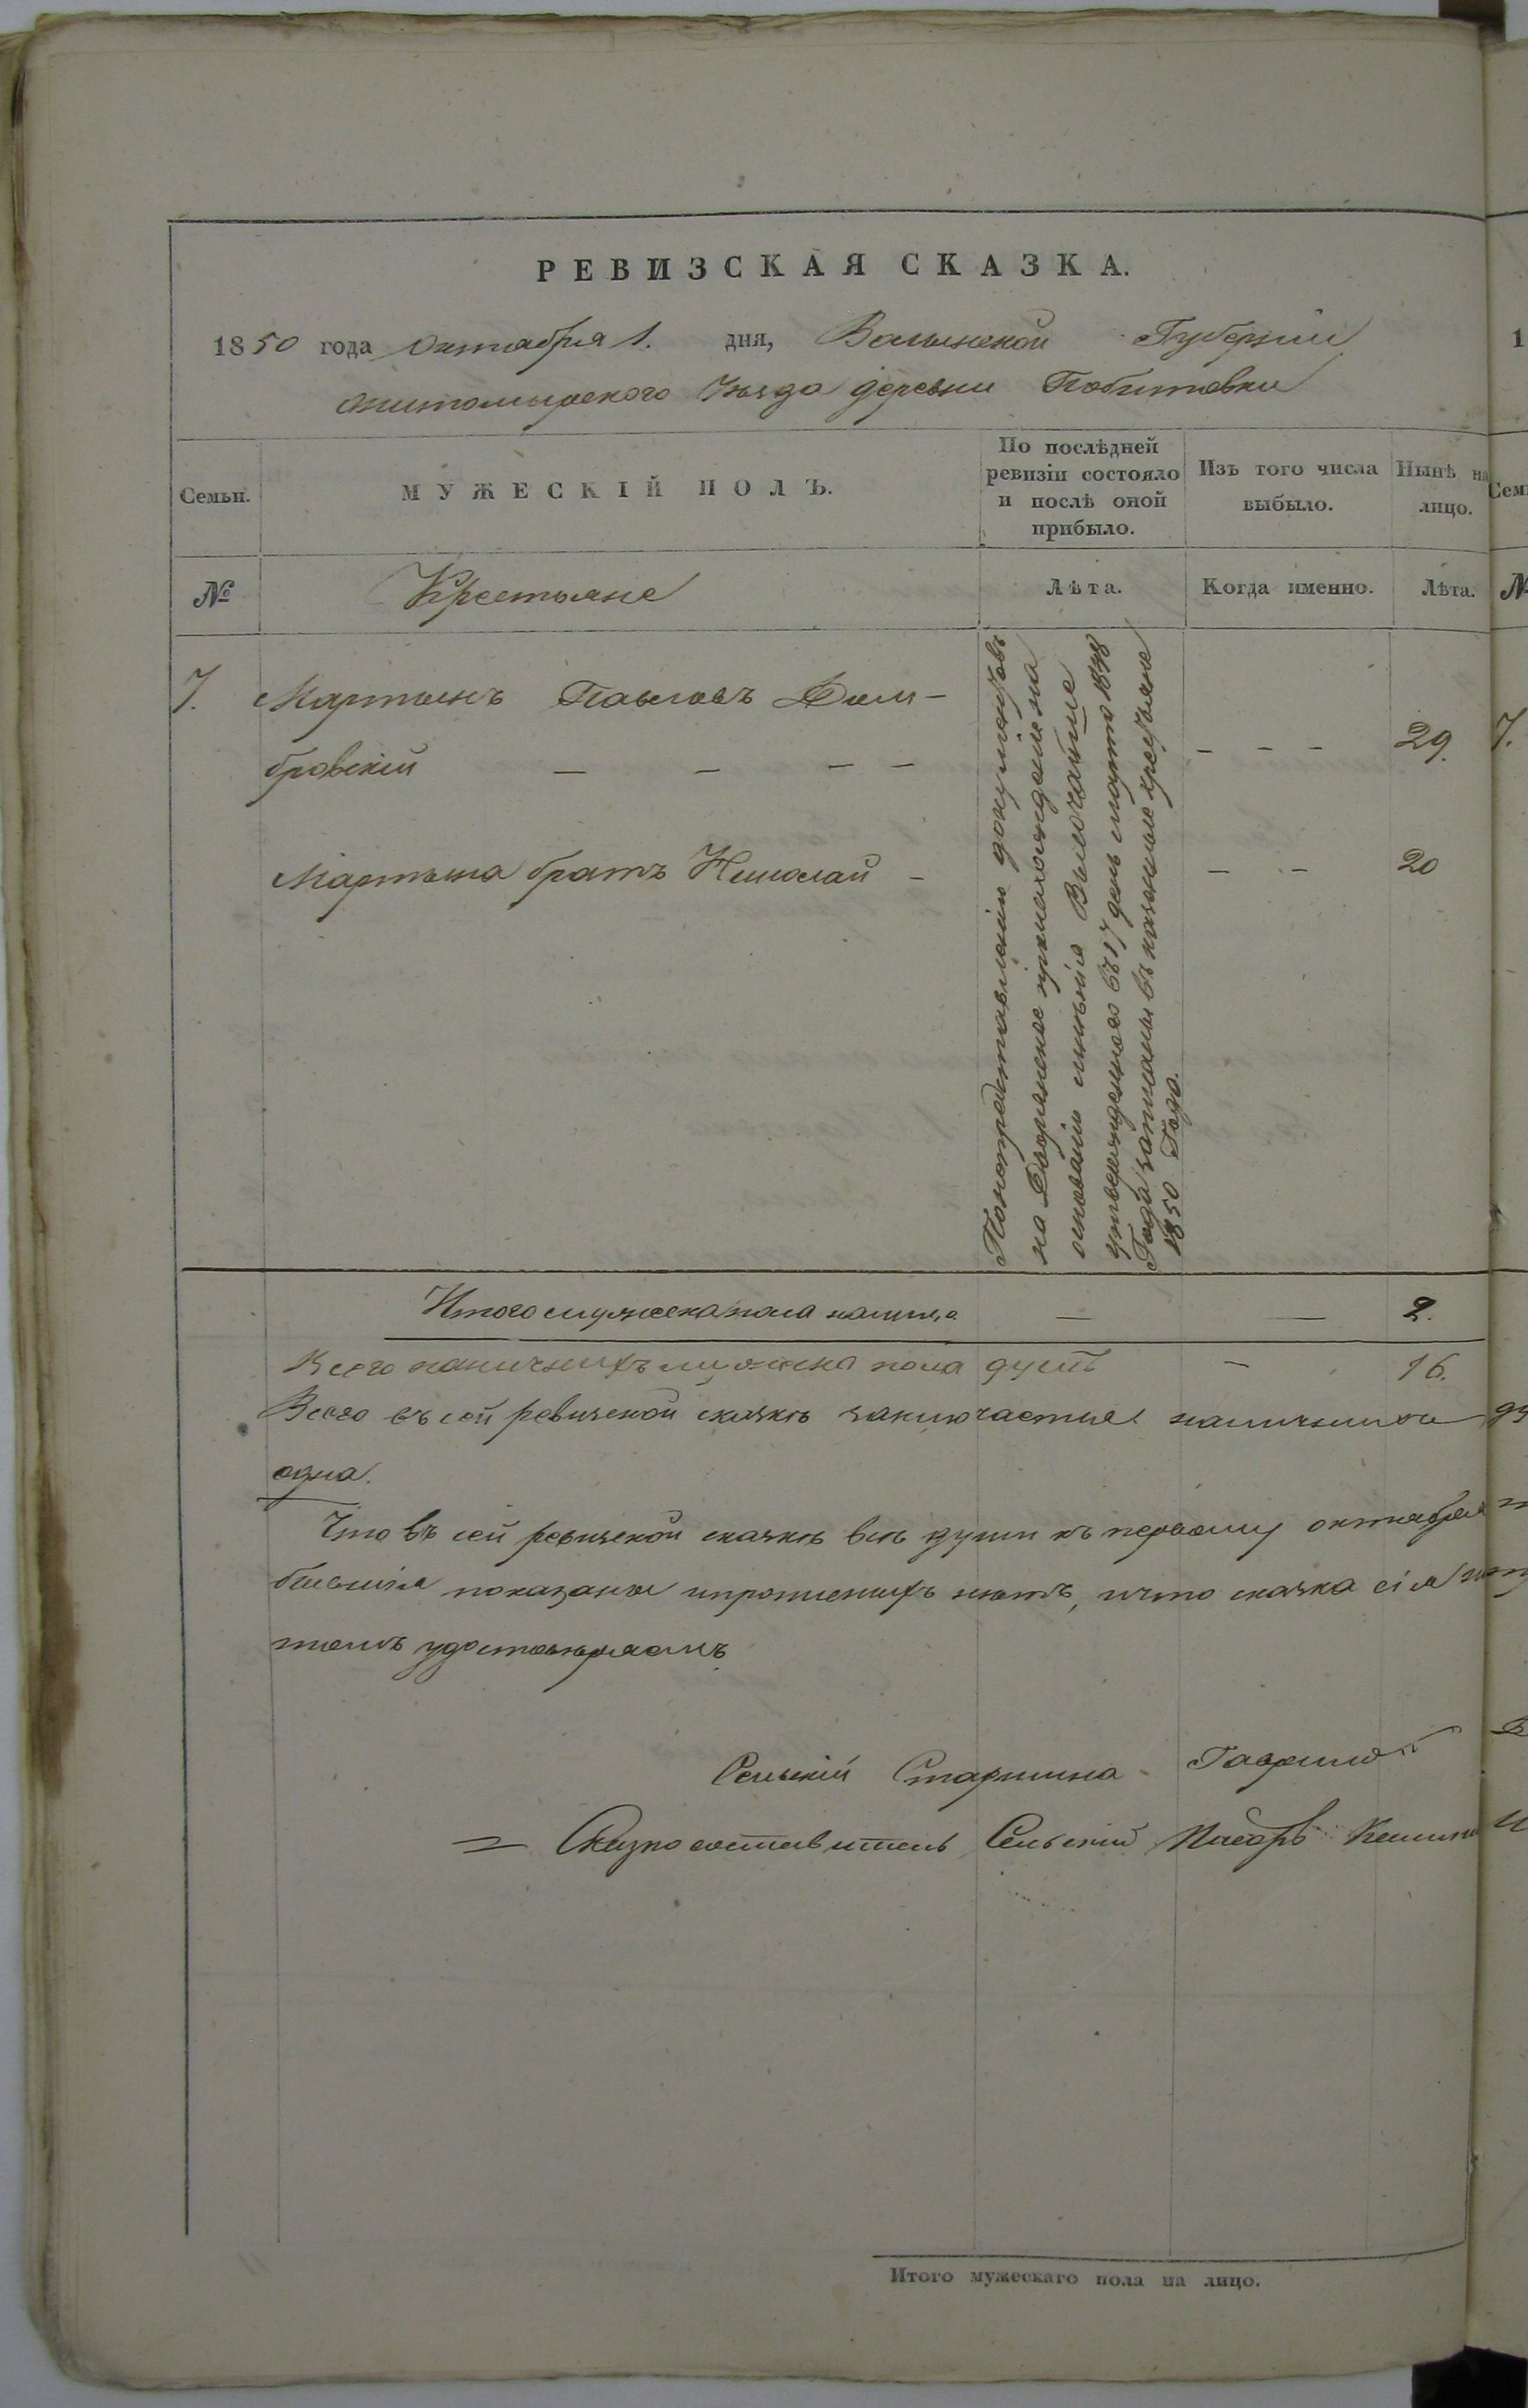 РЕВИЗСКАЯ СКАЗКА.
1850 года Октября 1. дня, Волынской Губернии
Житомирского Уезда деревни
Семьи.
МУЖЕСКІЙ ПОЛЪ.
По послѣдней
ревизіи состояло
и послѣ оной
прибыло.
Изъ того числа
выбыло.
Нынѣ на
лицо.
№
Крестьяне
Лѣта.
Когда именно.
Лѣта.
7. Мартынъ Павловъ Дом-
бровскій — — — — - - - 29. 7.
Мартына братъ Николай - - - 20
По непредставленію документовъ
на Дворянское происхожденіе на
основаніи мнѣнія Высочайше
утвержденнаго въ 17 день марта 1848
Года записаны въ казенные крестьяне
1850 Года.
Итого мужеска пола налицо — — 2.
Всего наличныхъ мужеска пола душъ — 16.
Всего въ сей ревизской сказкѣ заключается наличныхъ
одна.
Что въ сей ревизской сказкѣ всѣ души къ первому октября
бывшія показаны и прописныхъ нѣтъ, и что сказка сія
томъ удостовѣряемъ
Сельскій Старшина
= Сказкосоставитель Сельскій Писарь
Итого мужескаго пола на лицо.